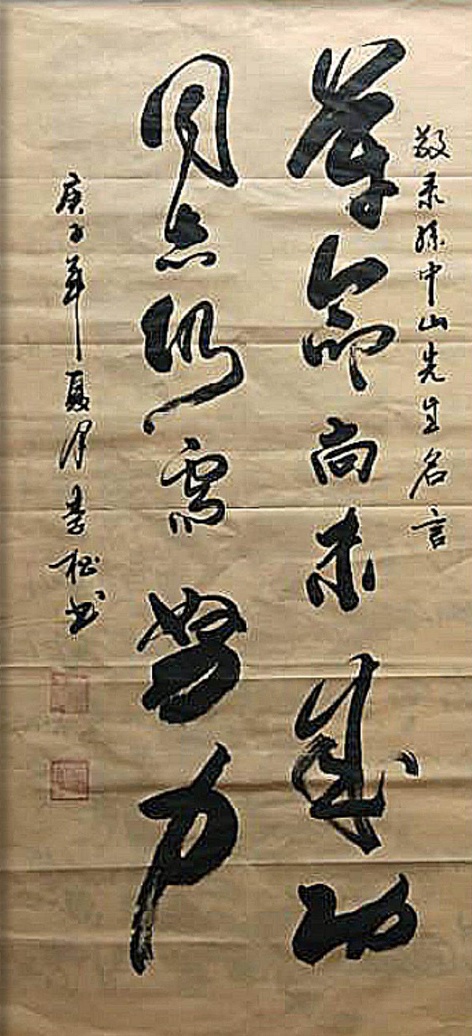 敬录孙中山先生名言
革命尚未成功
同志仍需努力
庚子年夏月李松书